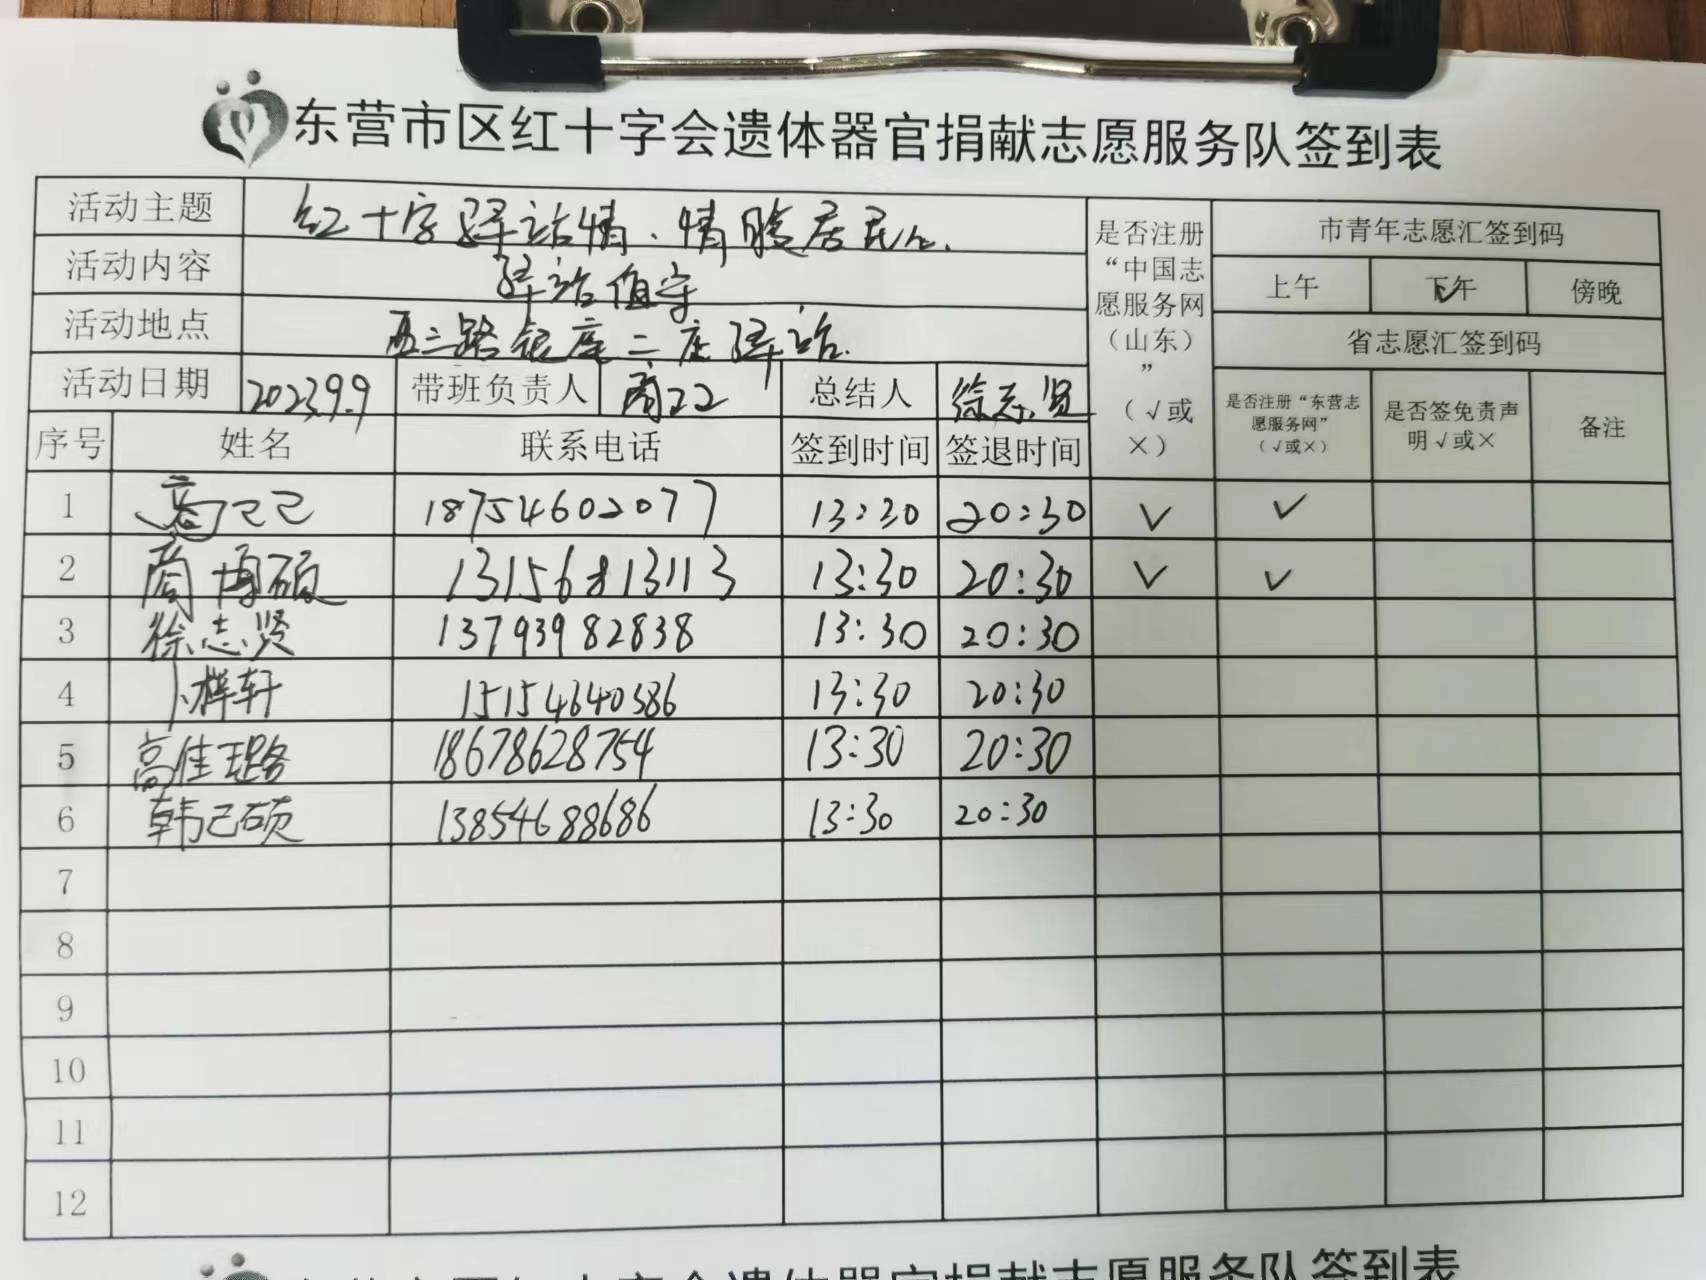 东营市区红十字会遗体器官捐献志愿服务队签到表
活动主题 红十字驿站情、情暖居民心.
活动内容 驿站值守
活动地点 西二路银座二店驿站.
活动日期 2023.9.9 带班负责人 总结人 徐志贤
是否注册“中国志愿服务网(山东)”(√或×)
市青年志愿汇签到码
上午 下午 ✓ 傍晚
省志愿汇签到码
是否注册“东营志愿服务网”(√或×) 是否签免责声明√或× 备注
序号 姓名 联系电话 签到时间 签退时间
1 18754602077 13:30 20:30 ✓ ✓
2 商博硕 13156813113 13:30 20:30 ✓ ✓
3 徐志贤 13793982838 13:30 20:30
4 15154640386 13:30 20:30
5 高佳璐 18678628754 13:30 20:30
6 韩己硕 13854688686 13:30 20:30
7
8
9
10
11
12
东营市区红十字会遗体器官捐献志愿服务队签到表